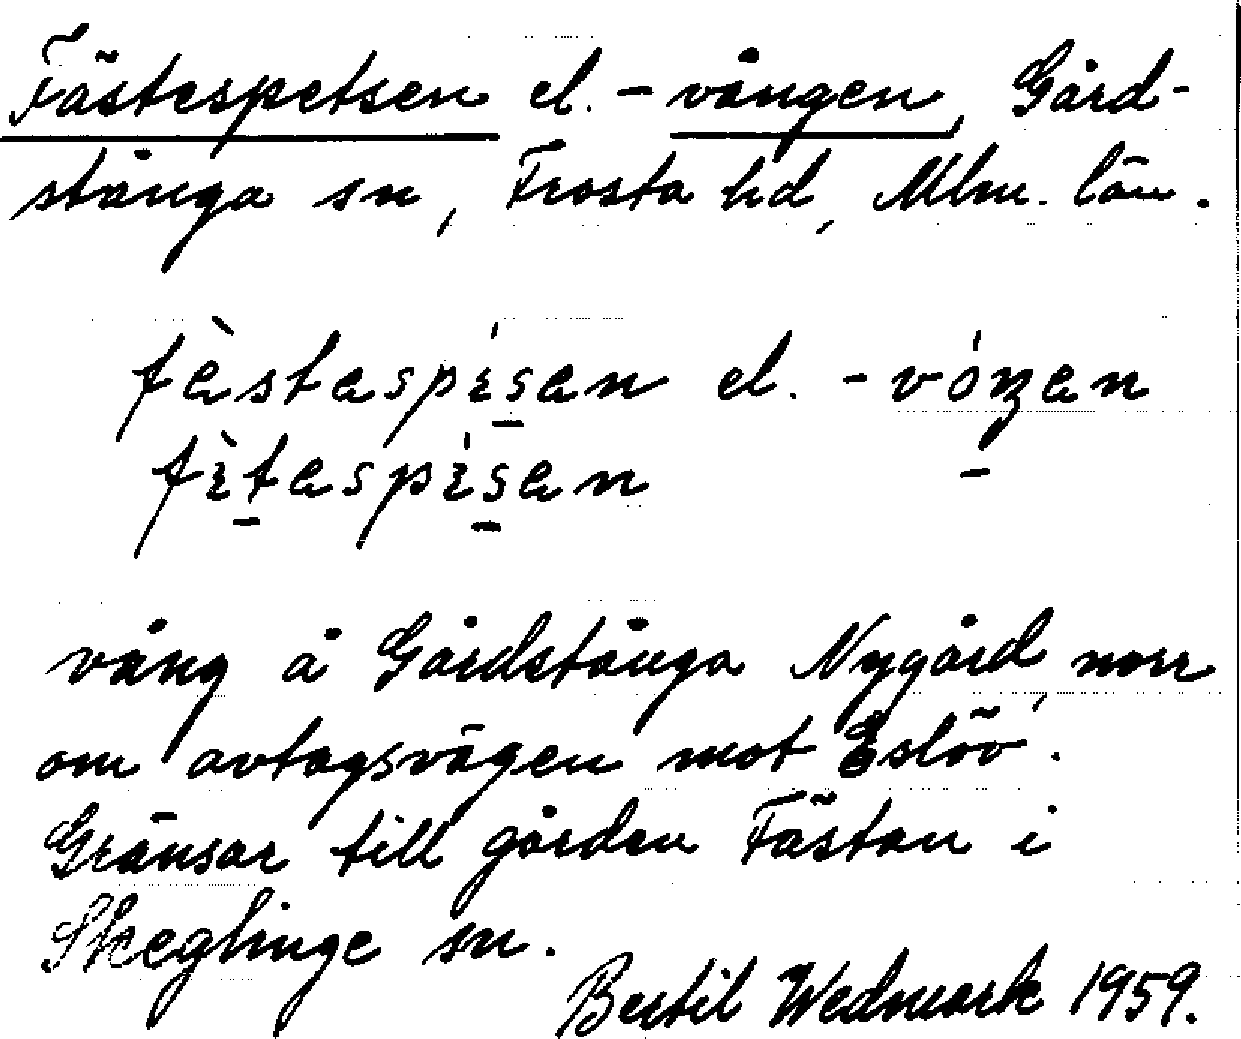 Fästespetsen el. -vången, Gård-
stånga sn, Frosta hd, Mlm. län.
fèstaspísan el. -vóŋen
fìtaspísan
vång å Gårdstånga Nygård, norr
om avtagsvägen mot Eslöv.
Gränsar till gården Fästan i
Skeglinge sn.
Bertil Wedmark 1959.